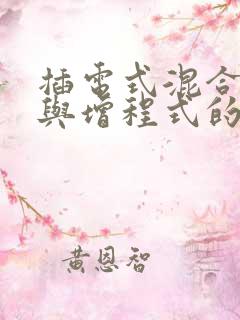 插電式混合
與增程式的
黃恩智